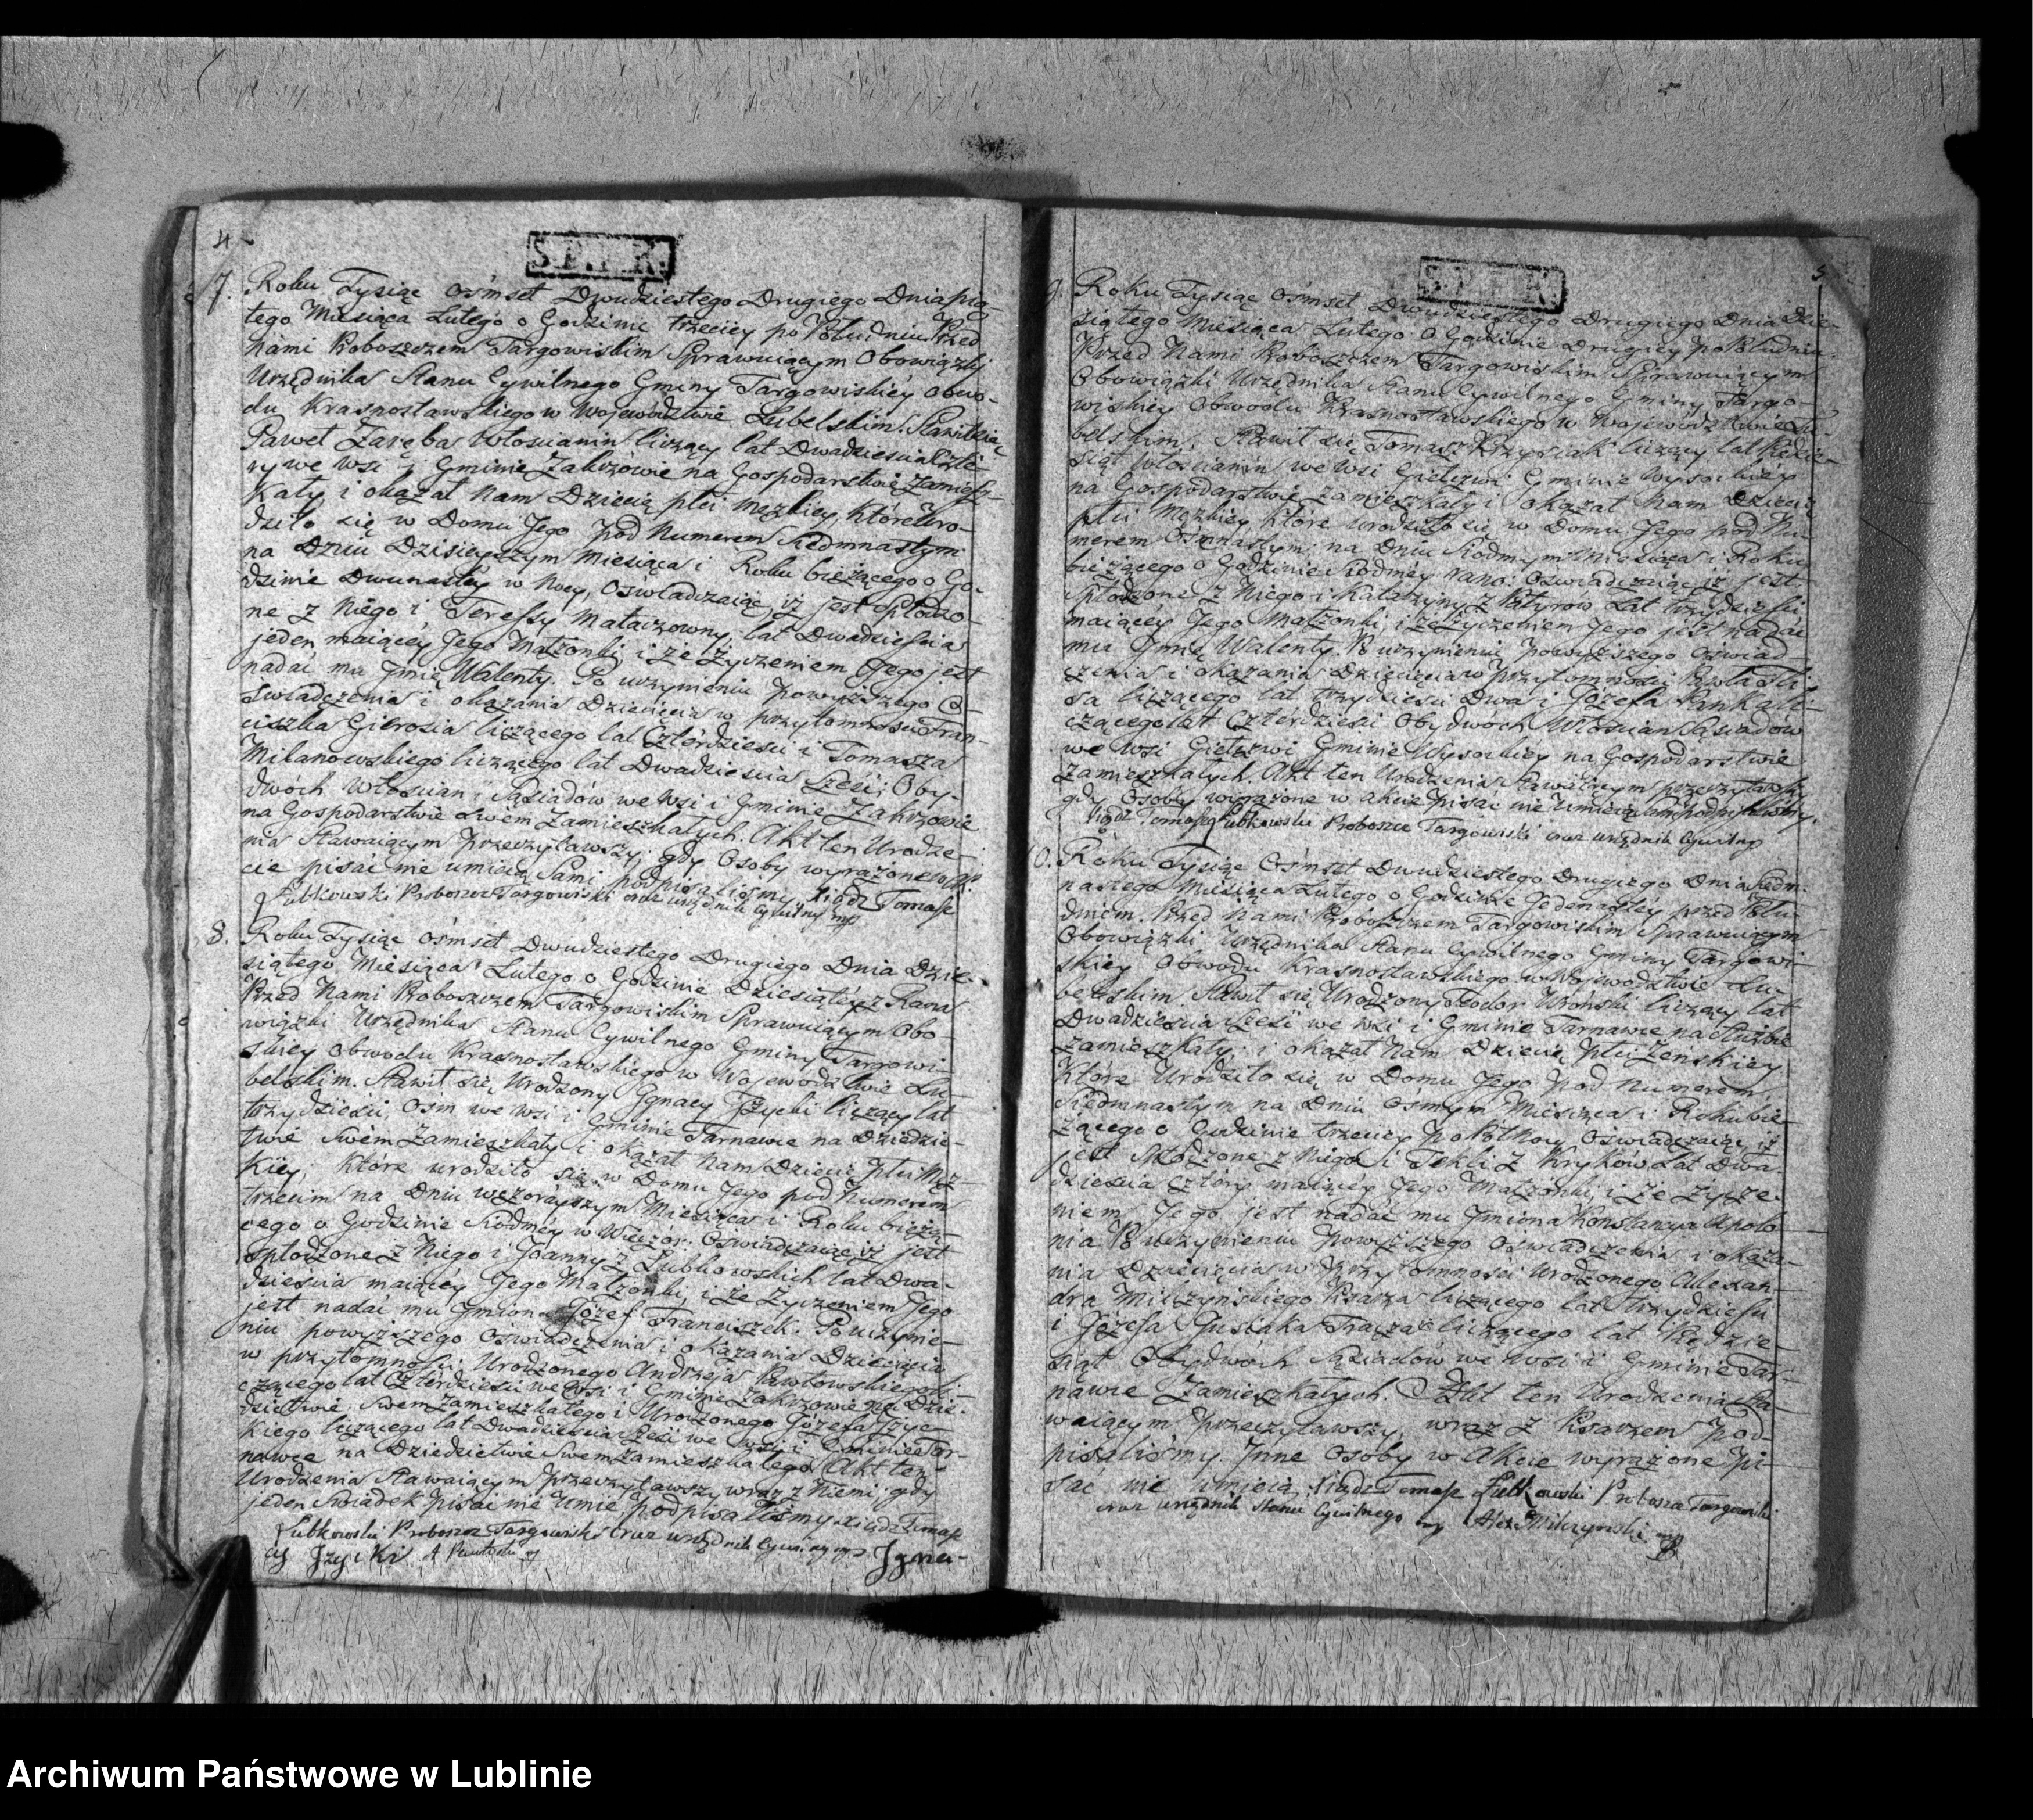 4
S.P.P.K.
7. Roku Tysiąc ośmset Dwudziestego Drugiego Dnia pią-
tego Miesiąca Lutego o Godzinie trzeciey po Południu Przed
Nami Proboszczem Targowiskim Sprawuiącym Obowiązki
Urzędnika Stanu Cywilnego Gminy Targowiskiéy Obwo-
du Krasnostawskiego w Województwie Lubelskim. Stawił się
Paweł Zaręba Włoscianin liczący lat Dwadziescia Czte-
ry we wsi i Gminie Zakrzowie na Gospodarstwie Zamiesz-
kały i okazał Nam Dziecię płci męzkiey, które uro-
dziło się w Domu Jego pod Numerem Siedmnastym
na Dniu Dzisieyszym Miesiąca i Roku bieżącego o Go-
dzinie Dwunastey w Nocy, Oświadczaiąc iż jest Spłodzo-
ne z Niego i Teressy Mataczowny, lat Dwadziescia
jeden maiącéy Jego Małżonki, i że życzeniem Jego jest
nadać mu Jmię Walenty. Po uczynieniu powyższego O-
swiadczenia i okazania Dziecięcia w przytomności Fran-
ciszka Gierosia liczącego lat Czterdziesci i Tomasza
Milanowskiego liczącego lat Dwadziescia Szesc; Oby-
dwóch Włoscian i Sąsiadów we Wsi i Gminie Zakrzowie
na Gospodarstwie Swem Zamieszkałych. Akt ten Urodze-
nia Stawaiącym przeczytawszy, gdy Osoby wyrażone w ak-
cie pisać nie umieią Sami podpisaliśmy. Xiądz Tomasz
Lubkowski Proboszcz Targowiski oraz urzędnik Cywilny mp
8. Roku Tysiąc ośmset Dwudziestego Drugiego Dnia Dzie-
siątego Miesiąca Lutego o Godzinie Dziesiątéy z Rana
Przed Nami Proboszczem Targowiskim Sprawuiącym Obo-
wiązki Urzędnika Stanu Cywilnego Gminy Targowi-
skiey Obwodu Krasnostawskiego w Województwie Lu-
belskim. Stawił się Urodzony Jgnacy Jżycki liczący lat
trzydzieści ośm we wsi i Gminie Tarnawce na Dziedzic-
twie Swém Zamieszkały i okazał Nam Dziecię płci Męz-
kiéy; które urodziło się w Domu Jego pod Numerem
trzecim na Dniu wczoraiszym Miesiąca i Roku bieżą-
cego o Godzinie Siódméy w Wieczor. Oświadczaiąc iż jest
spłodzone z Niego i Joanny z Lubkowskich lat Dwa-
dziescia maiącéy Jego Małżonki, i że życzeniem Jego
jest nadać mu Jmiona Józef Franciszek. Po uczynie-
niu powyższego Oświadczenia i okazania Dziecięcia
w przytomności Urodzonego Andrzeja Pawłowskiego li-
czącego lat Czterdziesci we Wsi i Gminie Zakrzowie na Dzie-
dzictwie Swem Zamieszkałego i Urodzonego Józefa Jżyc-
kiego liczącego lat Dwadziescia Sześć we Wsi i Gminie Tar-
nawce na Dziedzictwie Swem Zamieszkałego Akt ten
Urodzenia Stawaiącym przeczytawszy wraz z Niemi, gdy
jeden Swiadek pisac nie umie podpisaliśmy. Xiądz Tomasz
Lubkowski Proboszcz Targowiski oraz urzędnik Cywilny mp Jgna-
cy Jżycki A Pawłowski mp
5
S.P.P.K.
9. Roku Tysiąc ośmset Dwudziestego Drugiego Dnia Dzie-
siątego Miesiąca Lutego o Godzinie Drugiey po Południu
Przed Nami Proboszczem Targowiskim Sprawuiącym
Obowiązki Urzędnika Stanu Cywilnego Gminy Targo-
wiskiey Obwodu Krasnostawskiego w Województwie Lu-
belskim. Stawił się Tomasz Krzysiak liczący lat Pięćdzie-
siąt Włościanin we Wsi Giełczwi Gminie Wysockiéy
na Gospodarstwie zamieszkały i okazał Nam Dziecię
płci Męzkiey, które urodziło się w Domu Jego pod Nu-
merem Ośmnastym; na Dniu Siodmym Miesiąca i Roku
bieżącego o Godzinie Siodméy rano; Oświadczaiąc iż jest
Spłodzone z Niego i Katarzyny z lat trzydziesci
maiącey Jego Małżonki, i że życzeniem Jego jest nadać
mu Jmię Walenty. Po uczynieniu powyższego Oświad-
czenia i okazania Dziecięcia w przytomności
liczącego lat trzydziesci Dwa i Józefa li-
czącego lat Czterdziesci Obydwoch Włoscian Sąsiadów
we wsi Giełczwi Gminie Wysockiey na Gospodarstwie
Zamieszkałych. Akt ten Urodzenia Stawaiącym przeczytawszy
gdy Osoby wyrażone w akcie pisać nie umieią Sami podpisaliśmy.
Xiądz Tomasz Lubkowski Proboszcz Targowiski oraz urzędnik Cywilny
10. Roku Tysiąc Ośmset Dwudziestego Drugiego Dnia Siedm-
nastego Miesiąca Lutego o Godzinie Jedenastéy przed Połu-
dniem. Przed Nami Proboszczem Targowiskim Sprawuiącym
Obowiązki Urzędnika Stanu Cywilnego Gminy Targowi-
skiey Obwodu Krasnostawskiego w Województwie Lu-
belskim Stawił się Urodzony Teodor liczący lat
Dwadziescia Sześć we wsi i Gminie Tarnawce na Służbie
Zamieszkały; i okazał Nam Dziecię płci Żenskiey
Które Urodziło się w Domu Jego pod Numerem
Siedmnastym na Dniu Osmym Miesiąca i Roku bie-
żącego o Godzinie trzeciey po Północy Oświadczaiąc iż
jest Spłodzone z Niego i Tekli z Kryków Lat Dwa-
dziescia Cztéry maiącéy Jego Małżonki, i że życze-
niem Jego jest nadać mu Jmiona Konstancya Apolo-
nia Po uczynieniu powyższego Oświadczenia i okaza-
nia Dziecięcia w przytomności Urodzonego Alexan-
dra Milczyńskiego Pisarza liczącego lat trzydziesci
i Józefa Gusiaka Tracza liczącego lat Pięćdzie-
siąt Obydwóch Sąsiadów we wsi i Gminie Tar-
nawce Zamieszkałych. Akt ten Urodzenia Sta-
waiącym przeczytawszy, wraz z Pisarzem pod-
pisaliśmy. Jnne Osoby w Akcie wyrażone pi-
sać nie umieią. Xiądz Tomasz Lubkowski Proboszcz Targowiski
oraz urzędnik Stanu Cywilnego mp Alex Milczynski mp
Archiwum Państwowe w Lublinie